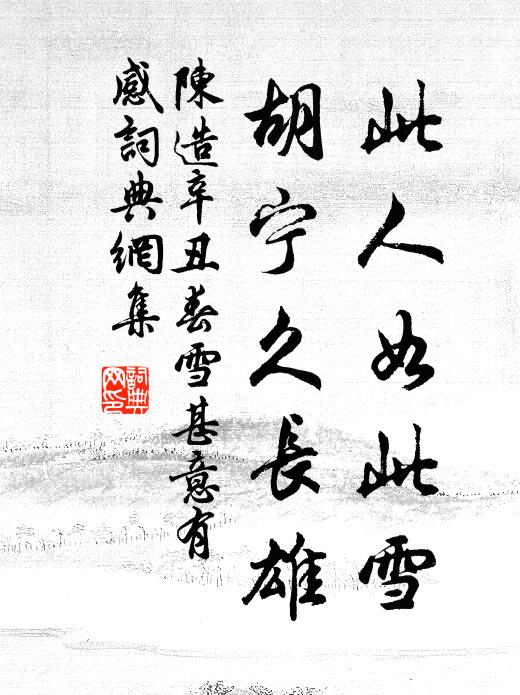 此人如此雪
胡宁久長雄
陳造辛丑春雪甚意有
感詞典網集
詞典网印